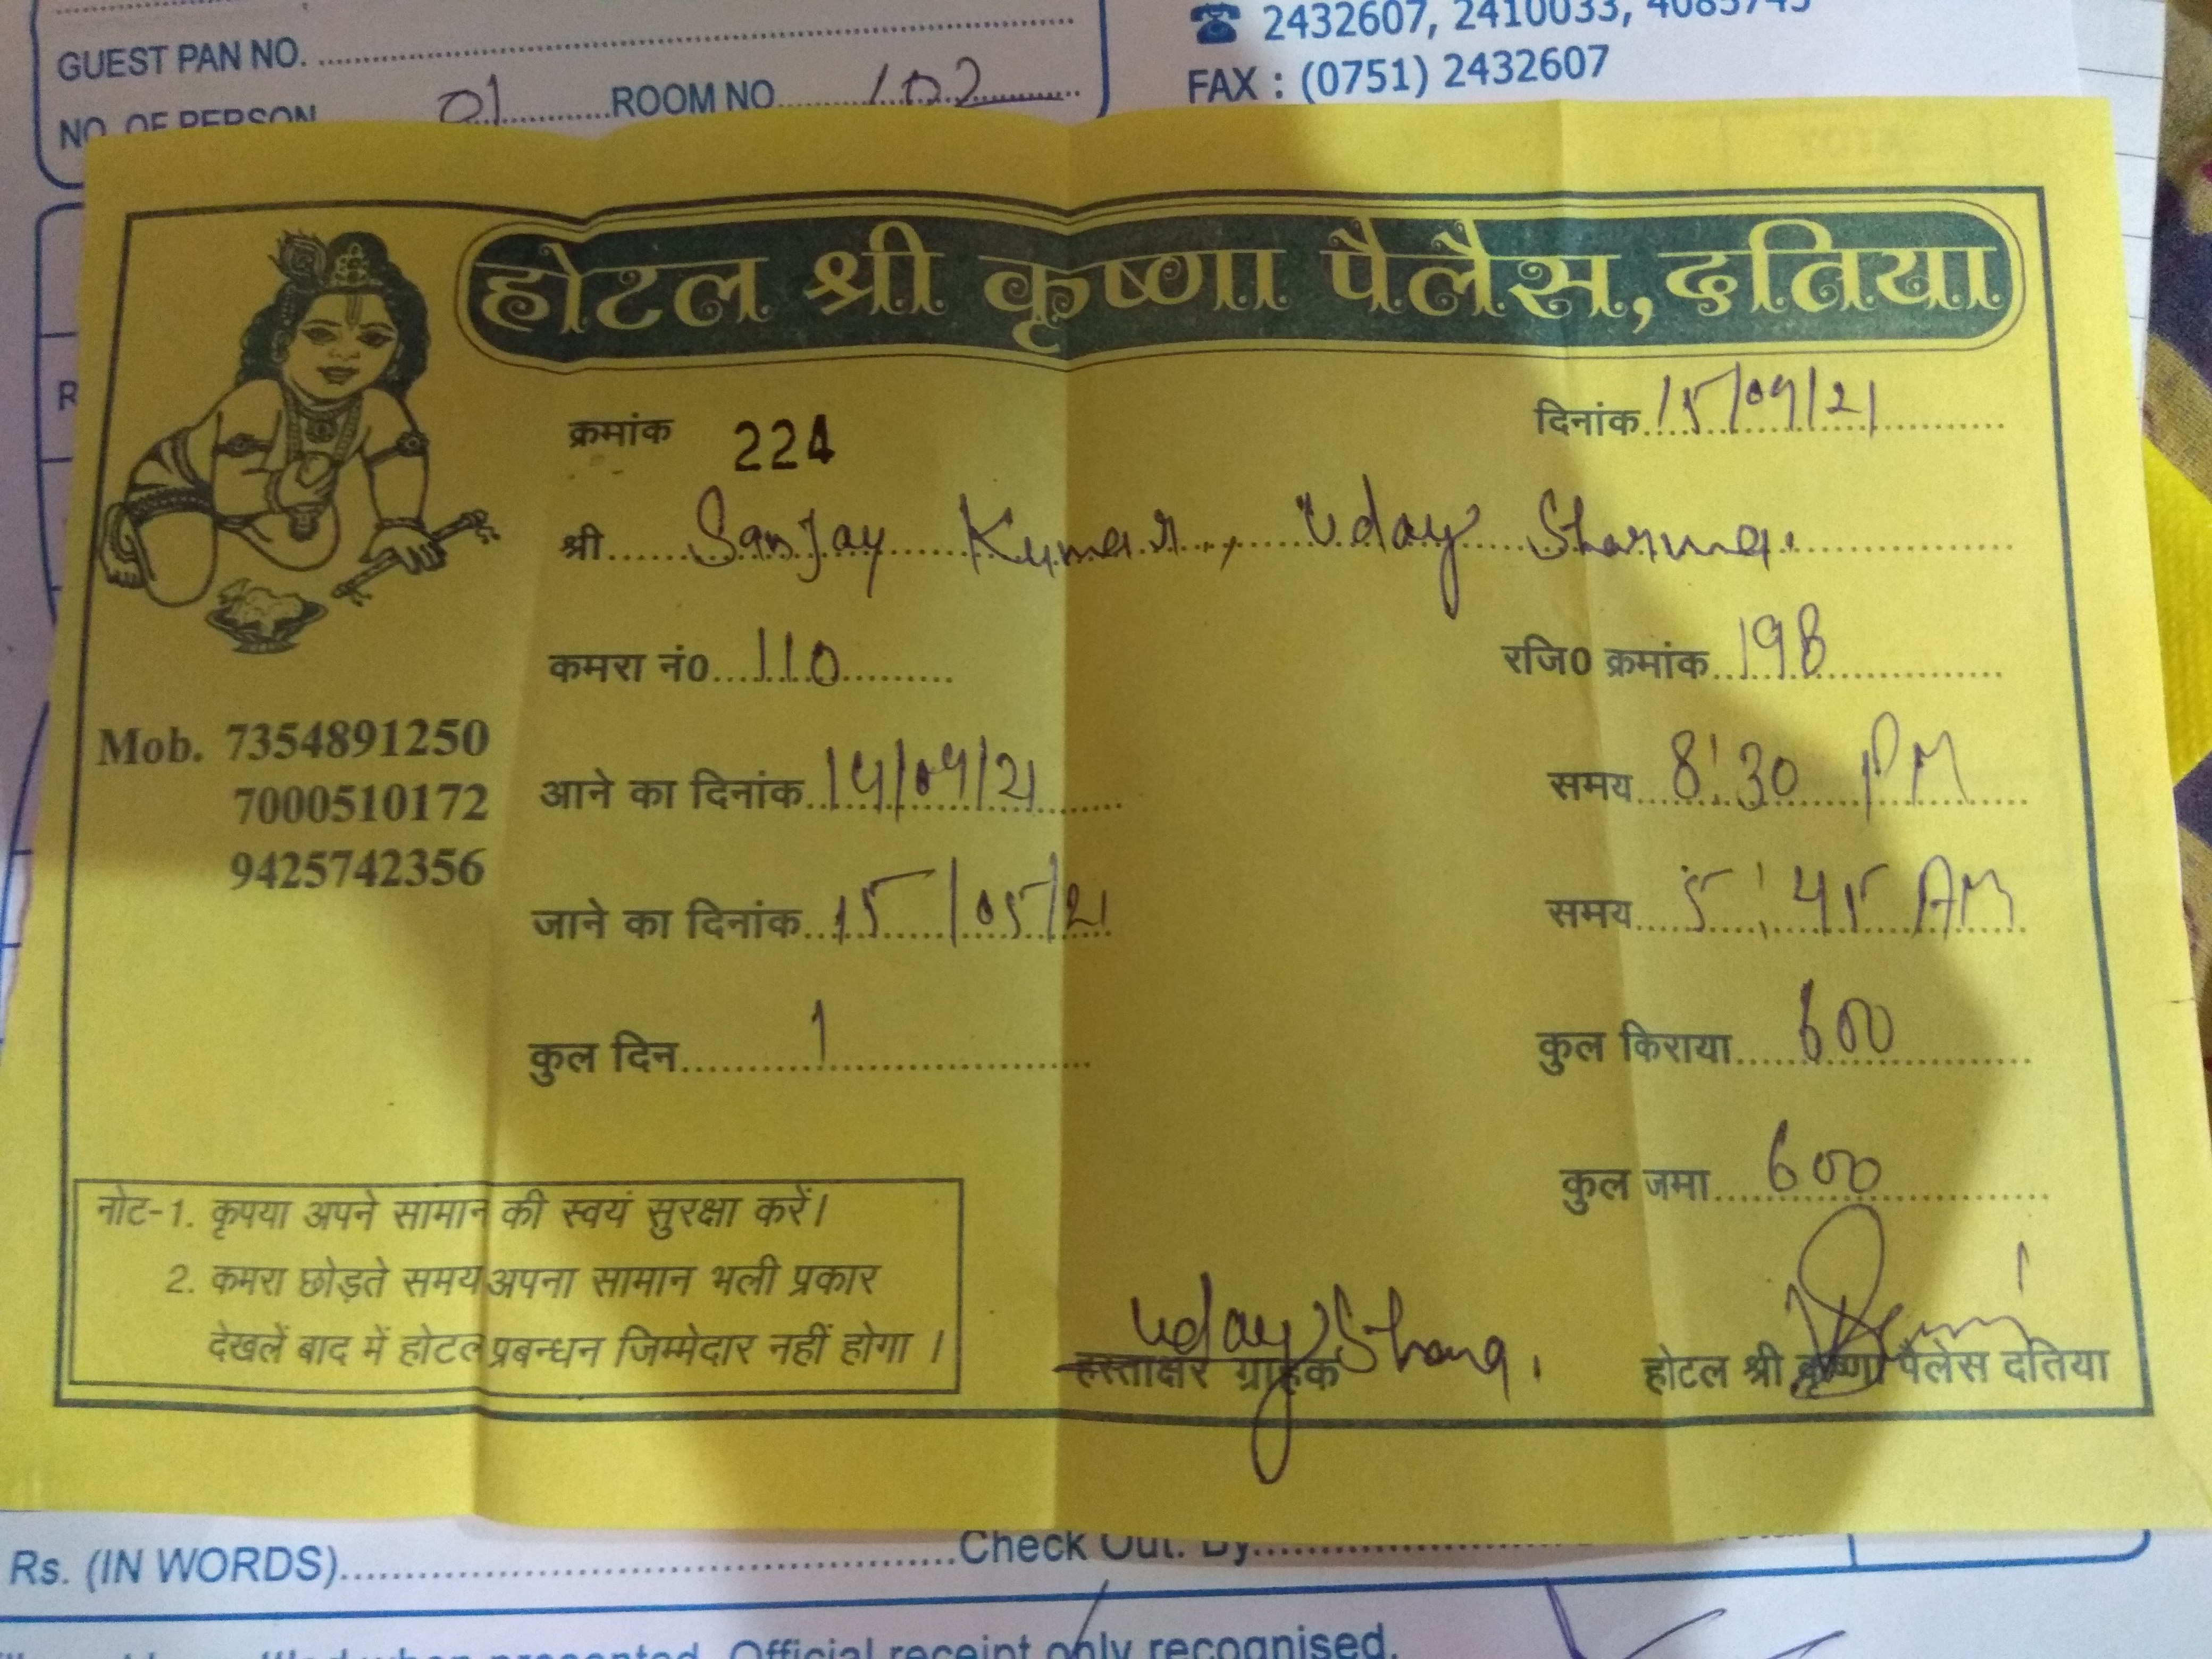 ☎ 2432607, 2410033, 4085745
GUEST PAN NO. ........
FAX : (0751) 2432607
NO. OF PERSON 01 ROOM NO. 102
होटल श्री कृष्णा पैलैस, दतिया
क्रमांक 224 दिनांक 15/09/21
श्री Sanjay Kumar, Uday Sharma.
कमरा नं0 110 रजि0 क्रमांक 198
Mob. 7354891250
7000510172
9425742356
आने का दिनांक 14/09/21 समय 8:30 PM
जाने का दिनांक 15/05/21 समय 5:45 AM
कुल दिन 1 कुल किराया 600
कुल जमा 600
नोट-1. कृपया अपने सामान की स्वयं सुरक्षा करें।
2. कमरा छोड़ते समय अपना सामान भली प्रकार
देखलें बाद में होटल प्रबन्धन जिम्मेदार नहीं होगा ।
Uday Sharma.
हस्ताक्षर ग्राहक होटल श्री कृष्णा पैलेस दतिया
Rs. (IN WORDS) Check Out. By
when presented. Official receipt only recognised.